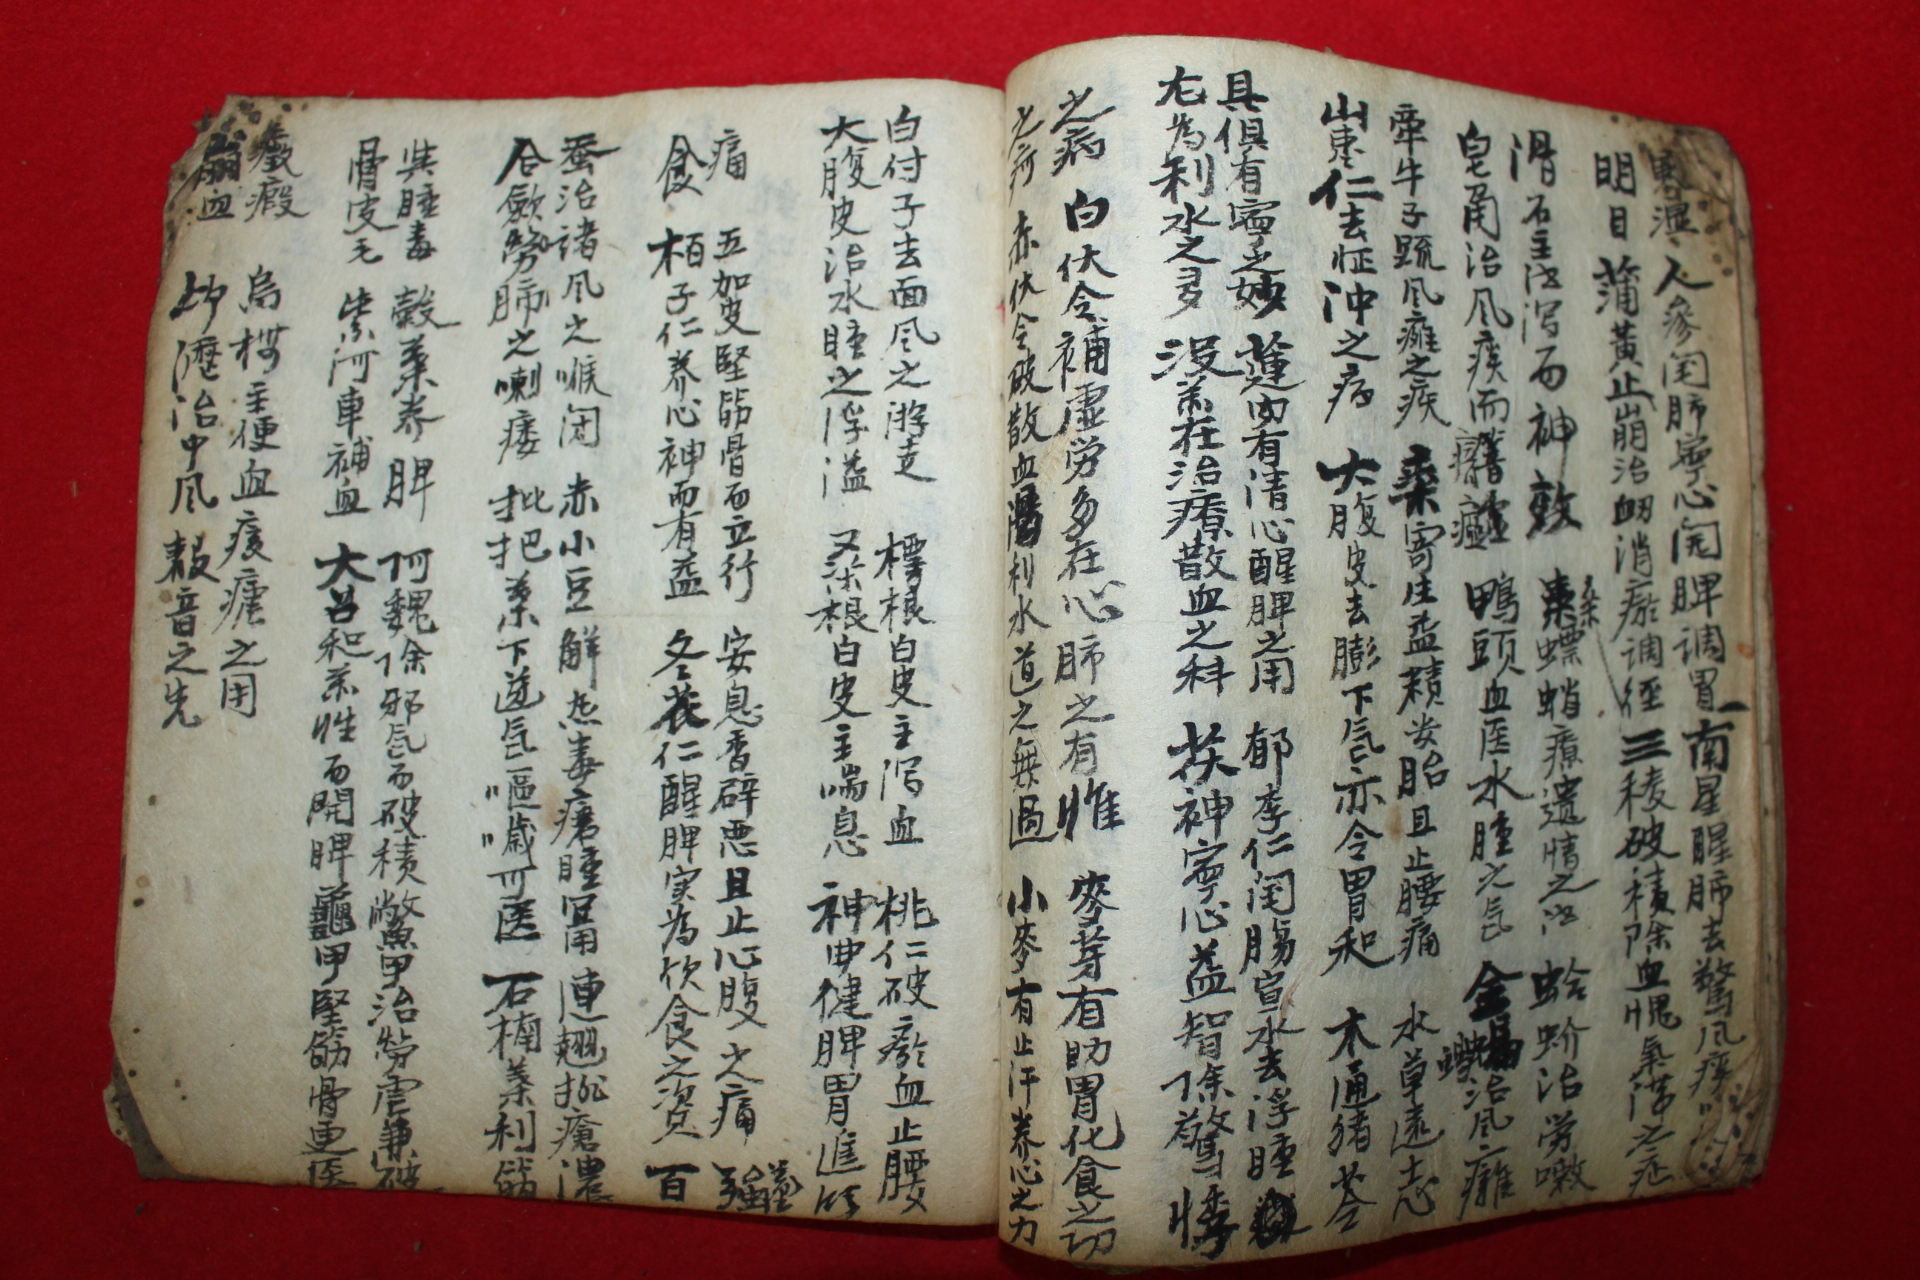 寒湿 人參潤肺寧心開脾調胃 南星醒肺去驚風痰
明目 蒲黃止崩治衄消瘀調徑 三稜破積除血愧氣滯之症
滑石主治瀉而神效 桑螵蛸療遺精之 蛤蚧治労嗽
皂角治風痰而 鴨頭血医水腫之气 金 治風癱
牽牛子疏風癱之疾 桑寄生益精安胎且止腰痛 水草遠志
山枣仁去怔冲之病 大腹皮去膨下气亦令胃和 木通猪苓
具俱有寧之妙 蓮肉有清心醒脾之用 郁李仁潤腸宣水去浮腫
尤為利水之多 没薬在治療散血之科 茯神寧心益智除驚悸
之病 白伏令補虚労多在心肺之有惟 麥芽有助胃化食之功
之疴 赤伏令破散血 利水道之無過 小麥有止汗养心之力
白付子去面风之游走 樗根白皮主瀉血 桃仁破瘀血止腰
大腹皮治水腫之浮溢 又桑根白皮主喘息 神曲健脾胃進
痛 五加皮堅筋骨而立行 安息香辟恶且止心腹之痛
食 栢子仁养心神而有益 冬花仁醒脾实為饮食之資 百
蚕治诸风之喉闭 赤小豆解热毒瘡腫冝用 連翘排瘡濃
合歛劳肺之喇痿 批把葉下逆气嘔噦可医 石楠葉利筋
其腫毒 穀葉养脾 阿魏除邪气而破積 鱉甲治劳虐兼破
骨皮毛 紫河車補血 大 和薬性而開脾 龜甲堅筋骨更医
癥瘕 烏 主便血疫瘧之用
崩血 治中风 音之先